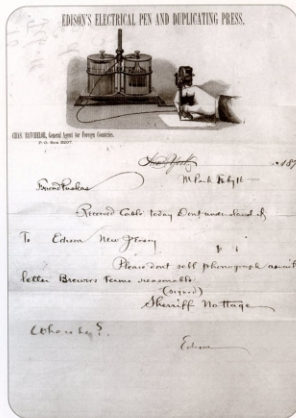 EDISON'S ELECTRICAL PEN AND DUPLICATING PRESS.
CHAS. BATCHELOR, General Agent for Foreign Countries.
P. O. Box
New York, 187
M Park
Friend Puskas
Received Cable today Dont understand it
To Edison New Jersey
Please dont sell phonograph await
letter Brewers terms reasonable
(signed)
Sherriff Nottage
Who is he?
Edison